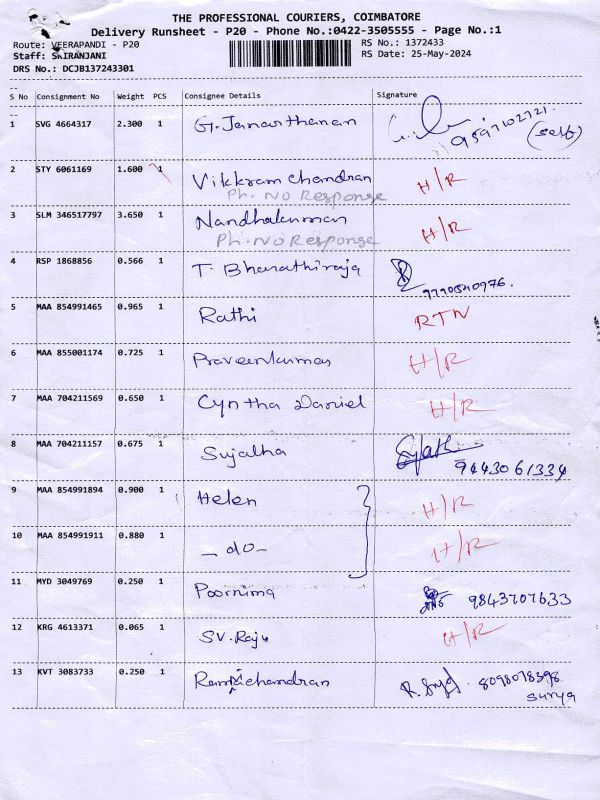 THE PROFESSIONAL COURIERS, COIMBATORE
Delivery Runsheet - P20 - Phone No.:0422-3505555 - Page No.:1
Route: VEERAPANDI - P20 RS No.: 1372433
Staff: SARANJANI RS Date: 25-May-2024
DRS No.: DCJB137243301
S No Consignment No Weight PCS Consignee Details Signature
1 SVG 4664317 2.300 1 G. Janarthanan 9597102721 (self)
2 STY 6061169 1.600 1 Vikkram chandran H/R
Ph. NO Response
3 SLM 346517797 3.650 1 Nandhakumar H/R
Ph. NO Response
4 RSP 1868856 0.566 1 T. Bharathiraja 9790540976.
5 MAA 854991465 0.965 1 Rathi RTN
6 MAA 855001174 0.725 1 Praveenkumar H/R
7 MAA 704211569 0.650 1 Cyntha Daniel H/R
8 MAA 704211157 0.675 1 Sujatha 9443061334
9 MAA 854991894 0.900 1 Helen H/R
10 MAA 854991911 0.880 1 - do - H/R
11 MYD 3049769 0.250 1 Poornima 9843707633
12 KRG 4613371 0.065 1 SV. Raju H/R
13 KVT 3083733 0.250 1 Ramachandran 8098078398
surya